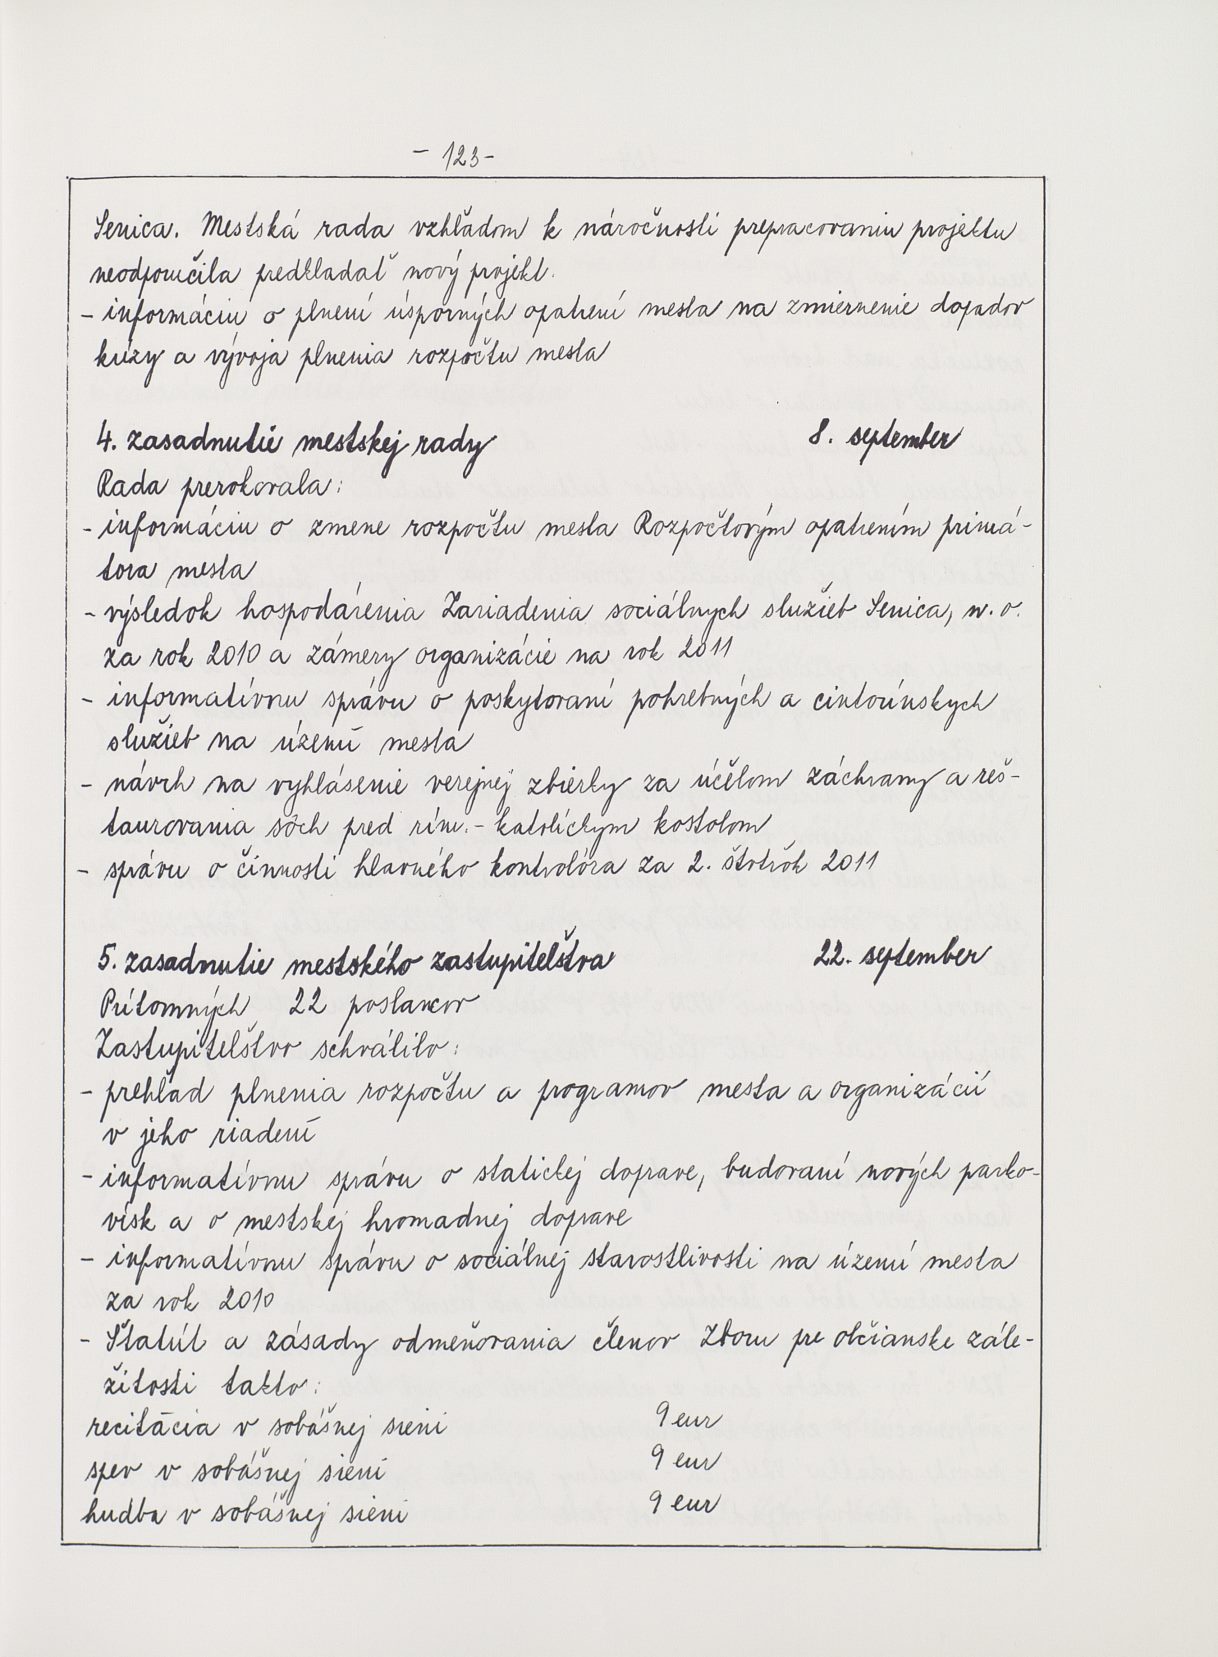 - 123 -
Senica. Mestská rada vzhľadom k náročnosti prepracovaniu projektu
neodporučila predkladať nový projekt.
- informáciu o plnení úsporných opatrení mesta na zmiernenie dopadov
krízy a vývoja plnenia rozpočtu mesta
4. zasadnutie mestskej rady 8. september
Rada prerokovala:
- informáciu o zmene rozpočtu mesta Rozpočtovým opatrením primá-
tora mesta
- výsledok hospodárenia Zariadenia sociálnych služieb Senica, n. o.
za rok 2010 a zámery organizácie na rok 2011
- informatívnu správu o poskytovaní pohrebných a cintorínskych
služieb na území mesta
- návrh na vyhlásenie verejnej zbierky za účelom záchrany a reš-
taurovania sôch pred rím.- katolíckym kostolom
- správu o činnosti hlavného kontrolóra za 2. štvrťrok 2011
5. zasadnutie mestského zastupiteľstva 22. september
Prítomných 22 poslancov
Zastupiteľstvo schválilo:
- prehľad plnenia rozpočtu a programov mesta a organizácií
v jeho riadení
- informatívnu správu o statickej doprave, budovaní nových parko-
vísk a o mestskej hromadnej doprave
- informatívnu správu o sociálnej starostlivosti na území mesta
za rok 2010
- Štatút a zásady odmeňovania členov Zboru pre občianske zále-
žitosti takto:
recitácia v sobášnej sieni 9 eur
spev v sobášnej sieni 9 eur
hudba v sobášnej sieni 9 eur